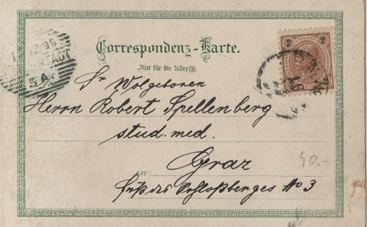 Correspondenz-Karte.
Nur für die Adresse
Sr Wolgeboren
Herrn Robert Spellenberg
stud. med.
in Graz
40.-
Fuß des Schloßberges No 3